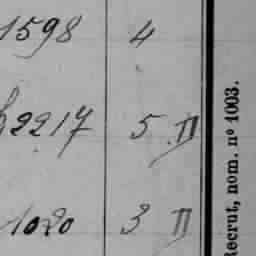 1598 4
2217 5 II
1020 3 II
Recrut, nom. nº 1003.